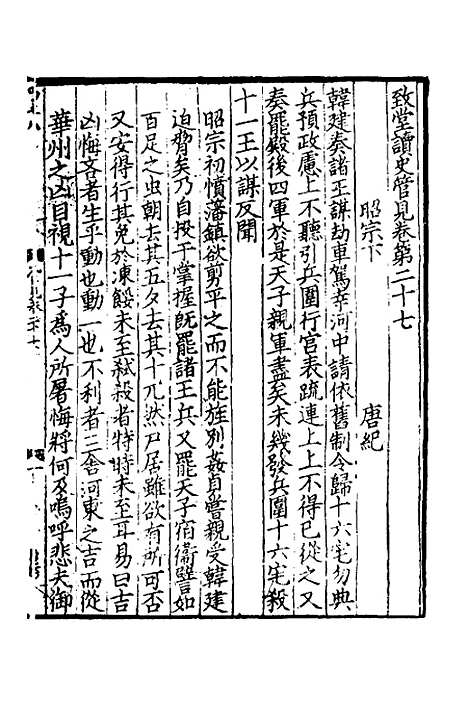 致堂讀史管見卷第二十七
昭宗下 唐紀
韓建奏諸王謀劫車駕幸河中請依舊制令歸十六宅勿典
兵預政慮上不聽引兵圍行宮表疏連上上不得已從之又
奏罷殿後四軍於是天子親軍盡矣未幾發兵圍十六宅殺
十一王以謀反聞
昭宗初憤藩鎮欲剪平之而不能旌別姦良嘗親受韓建
迫脅矣乃自投于掌握旣罷諸王兵又罷天子宿衛譬如
百足之虫朝去其五夕去其十兀然尸居雖欲有所可否
又安得行其免於凍餒未至弑殺者特時未至耳易曰吉
凶悔吝者生乎動也動一也不利者三舍河東之吉而從
華州之凶目視十一子爲人所屠悔將何及嗚呼悲夫御